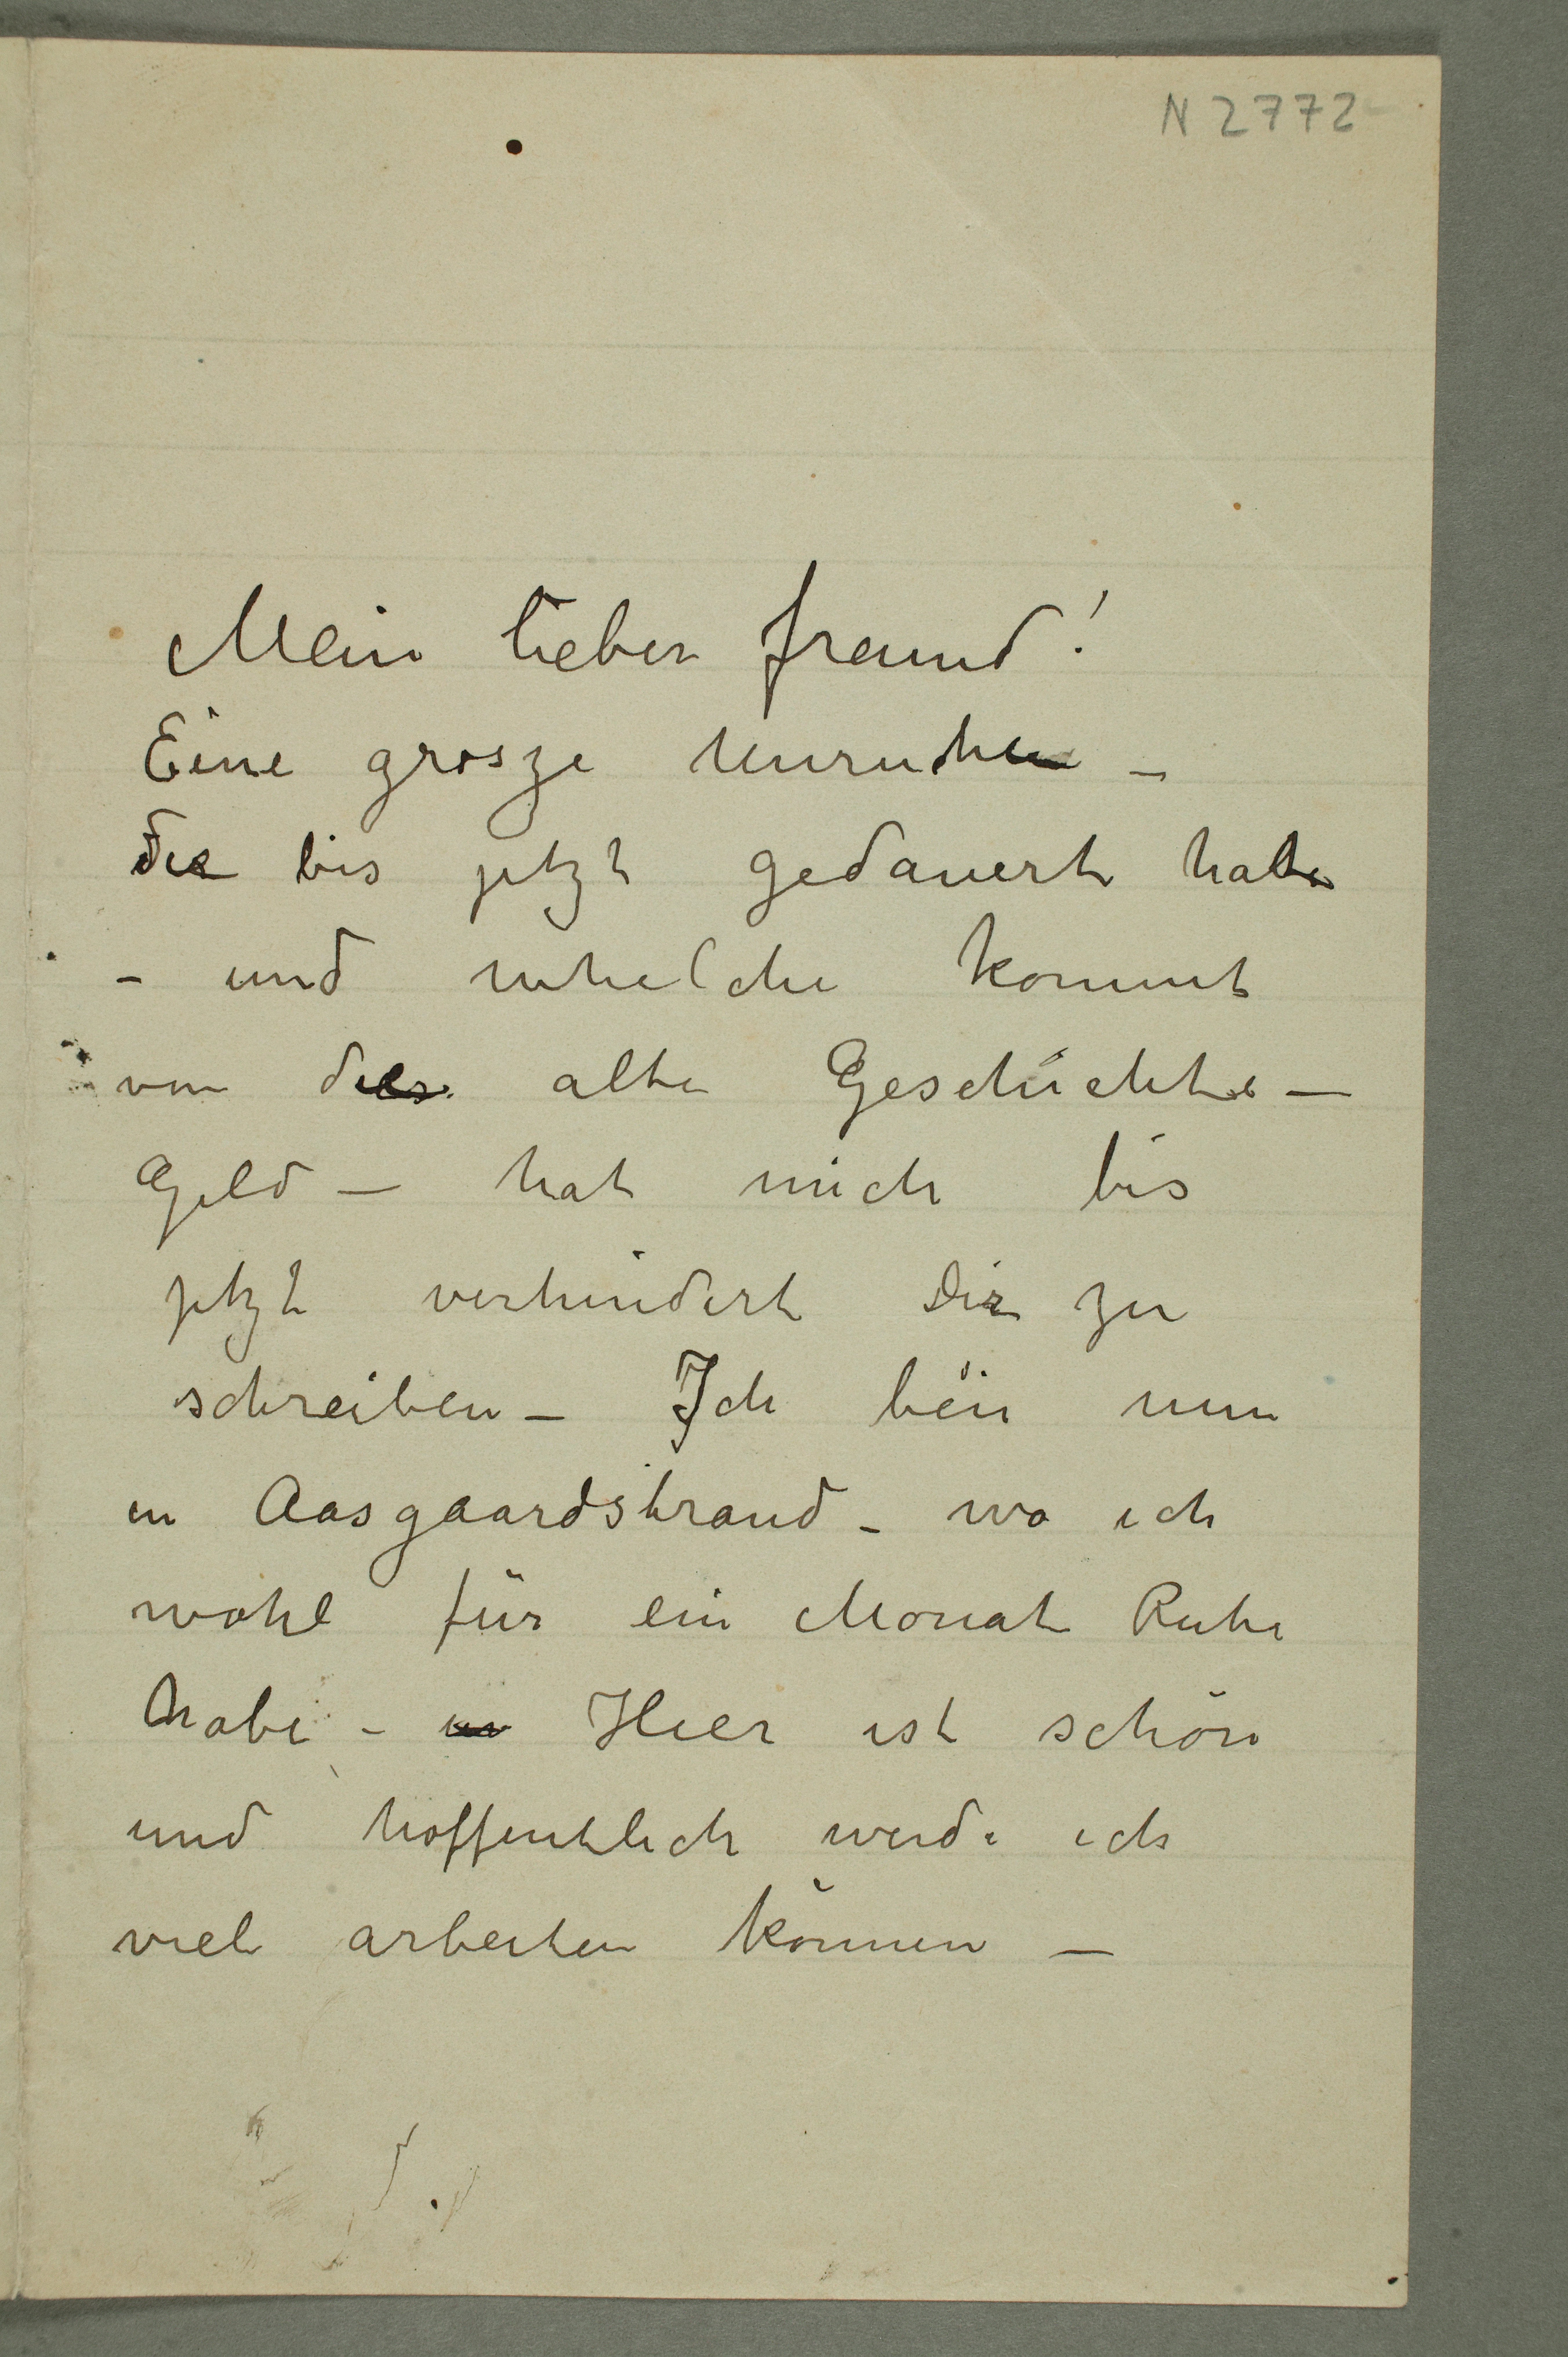 N 2772
Mein lieber Freund!
Eine grosze Unruhe –
die bis jetzt gedauert hat
– und whelche kommt
von der alte Geschichte –
Geld – hat mich bis
jetzt verhindert Dir zu
schreiben – Ich bin nun
in Aasgaardstrand – wo ich
wohl für ein Monat Ruhe
habe – Hier ist schön
und hoffentlich werde ich
viel arbeiten können –